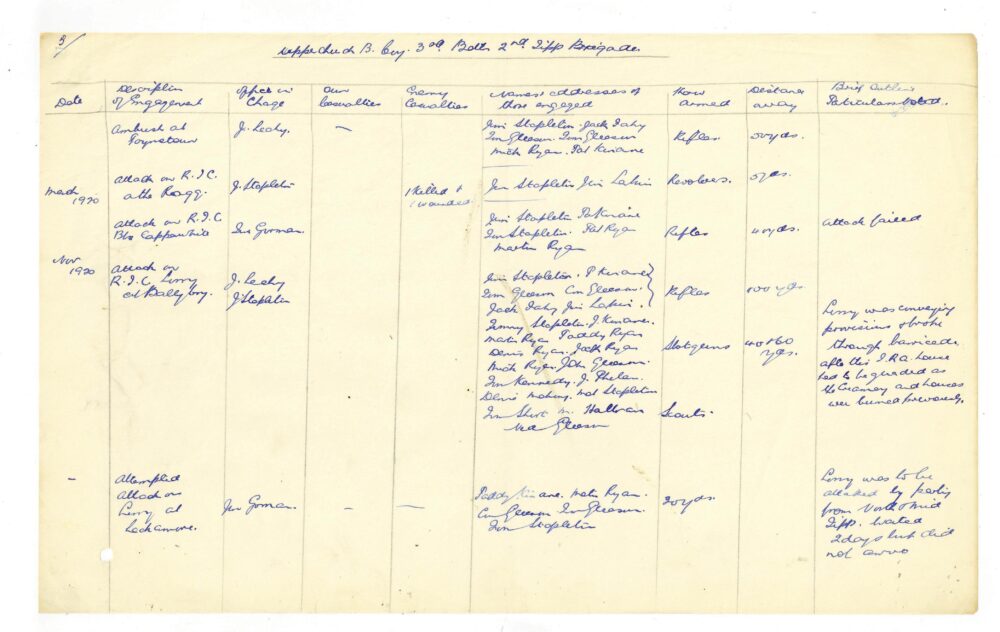 3/
Upperchurch B. Coy. 3rd Batt. 2nd Tipp Brigade.
Date
Description of Engagement
Officer in Charge
Our Casualties
Enemy Casualties
Names & addresses of those engaged
How armed
Distance away
Brief Outline Particulars
Ambush at
J. Leahy.
—
Jim Stapleton. Jack Fahy
Jim Gleeson. Con Gleeson
Mick Ryan. Pat Kinane
Rifles
yds.
March 1920
Attack on R.I.C.
at the Ragg.
J. Stapleton
1 Killed &
1 wounded
Jim Stapleton Jim Larkin
Revolvers.
5 yds.
Attack on R.I.C
Bks Cappawhite
Jas Gorman.
Jim Stapleton P. Kinane
Jim Stapleton. Pat Ryan
Martin Ryan
Rifles
40 yds.
Attack failed
Nov 1920
Attack on
R.I.C Lorry
at
J. Leahy
J. Stapleton
Jim Stapleton. P Kinane
Jim Gleeson Con Gleeson.
Jack Fahy Jim Larkin.
Rifles
100 yds.
Jimmy Stapleton. J. Kinane.
Martin Ryan Paddy Ryan
Denis Ryan. Jack Ryan
Mick Ryan. John Gleeson.
Jim Kennedy. J. Phelan.
Denis Mat Stapleton
Shotguns
40 to 60
yds.
Jim Short M.
Ned Gleeson
Scouts.
Lorry was conveying
provisions & broke
through barricade.
after this I.R.A. houses
had to be guarded as
the Creamery and houses
were burned previously.
—
Attempted
attack on
Lorry at
Lackamore.
Jas Gorman.
—
—
Paddy Kinane. Martin Ryan.
Con Gleeson Jim Gleeson.
Jim Stapleton
20 yds.
Lorry was to be
attacked by party
from North & Mid
Tipp. waited
2 days but did
not